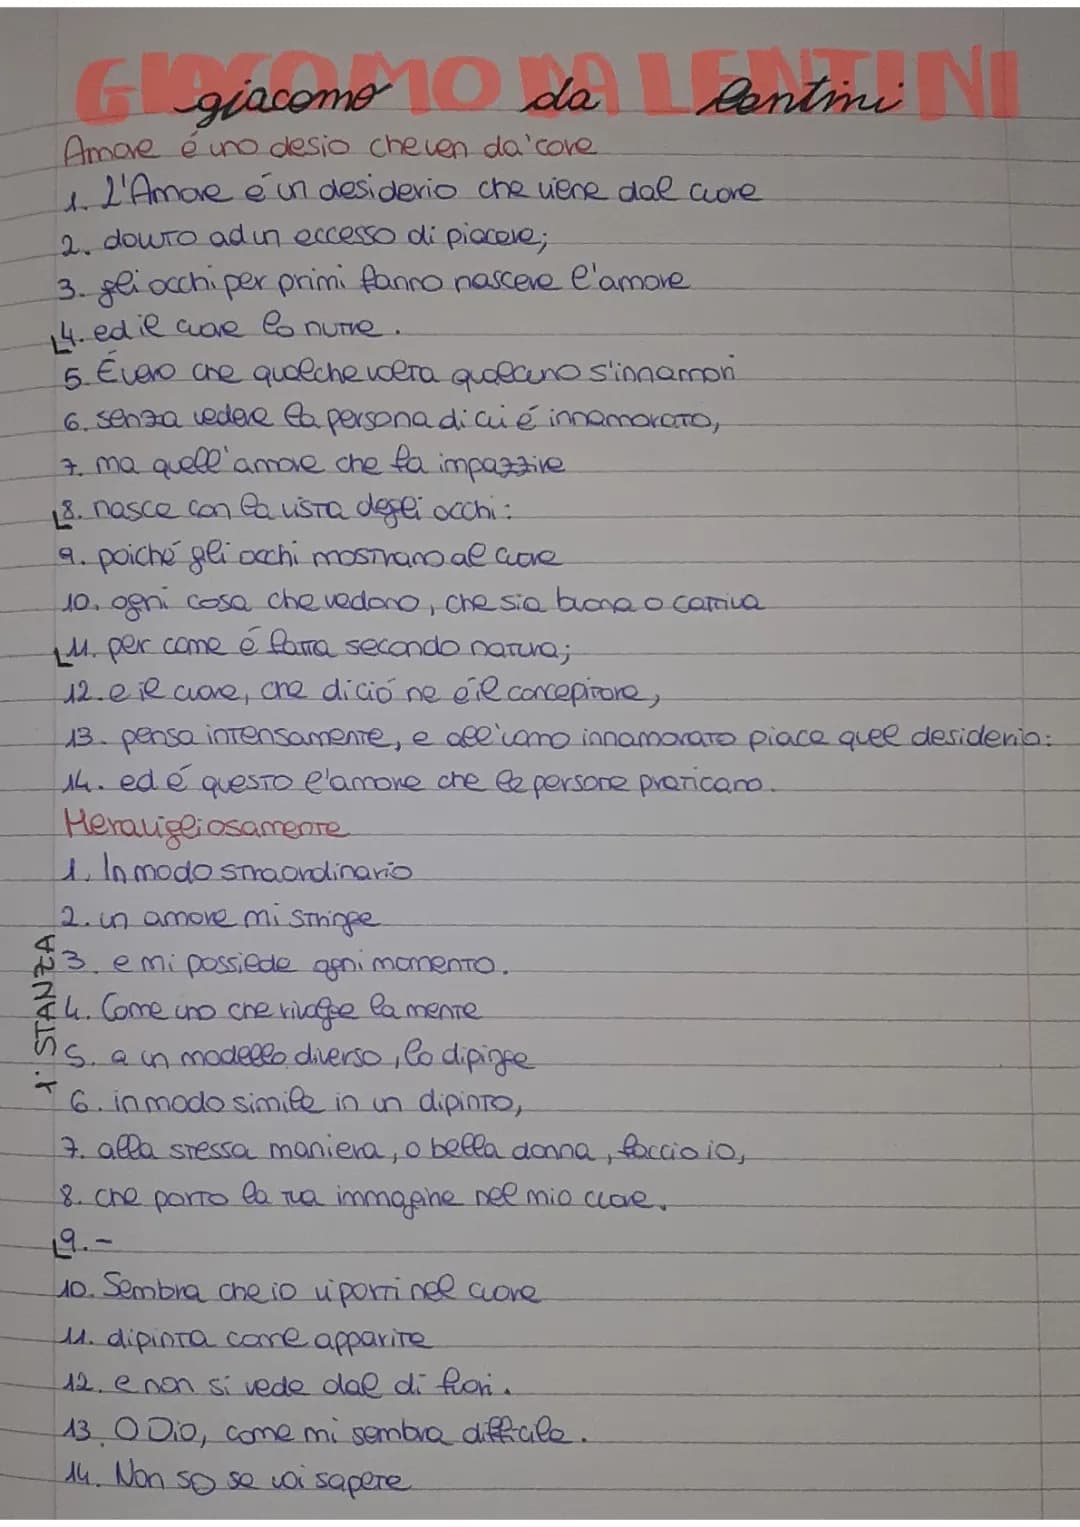 GIACOMO DA LENTINI
giacomo da lentini
Amore é uno desio che ven da' core
1. L'Amore é un desiderio che viene dal cuore
2. dovuto ad un eccesso di piacere;
3. gli occhi per primi fanno nascere l'amore
4. ed il cuore lo nutre.
5. É vero che qualche volta qualcuno s'innamori
6. senza vedere la persona di cui é innamorato,
7. ma quell'amore che fa impazzire
8. nasce con la vista degli occhi:
9. poiché gli occhi mostrano al cuore
10. ogni cosa che vedono, che sia buona o cattiva
11. per come é fatta secondo natura;
12. e il cuore, che di ció ne é il concepitore,
13. pensa intensamente, e all'uomo innamorato piace quel desiderio:
14. ed é questo l'amore che le persone praticano.
Meravigliosamente
1. In modo straordinario
2. un amore mi stringe
3. e mi possiede ogni momento.
4. Come uno che rivolge la mente
5. a un modello diverso, lo dipinge
6. in modo simile in un dipinto,
7. alla stessa maniera, o bella donna, faccio io,
8. che porto la tua immagine nel mio cuore.
9. -
1. STANZA
10. Sembra che io vi porti nel cuore
11. dipinta come apparite
12. e non si vede dal di fuori.
13. O Dio, come mi sembra difficile.
14. Non so se voi sapete